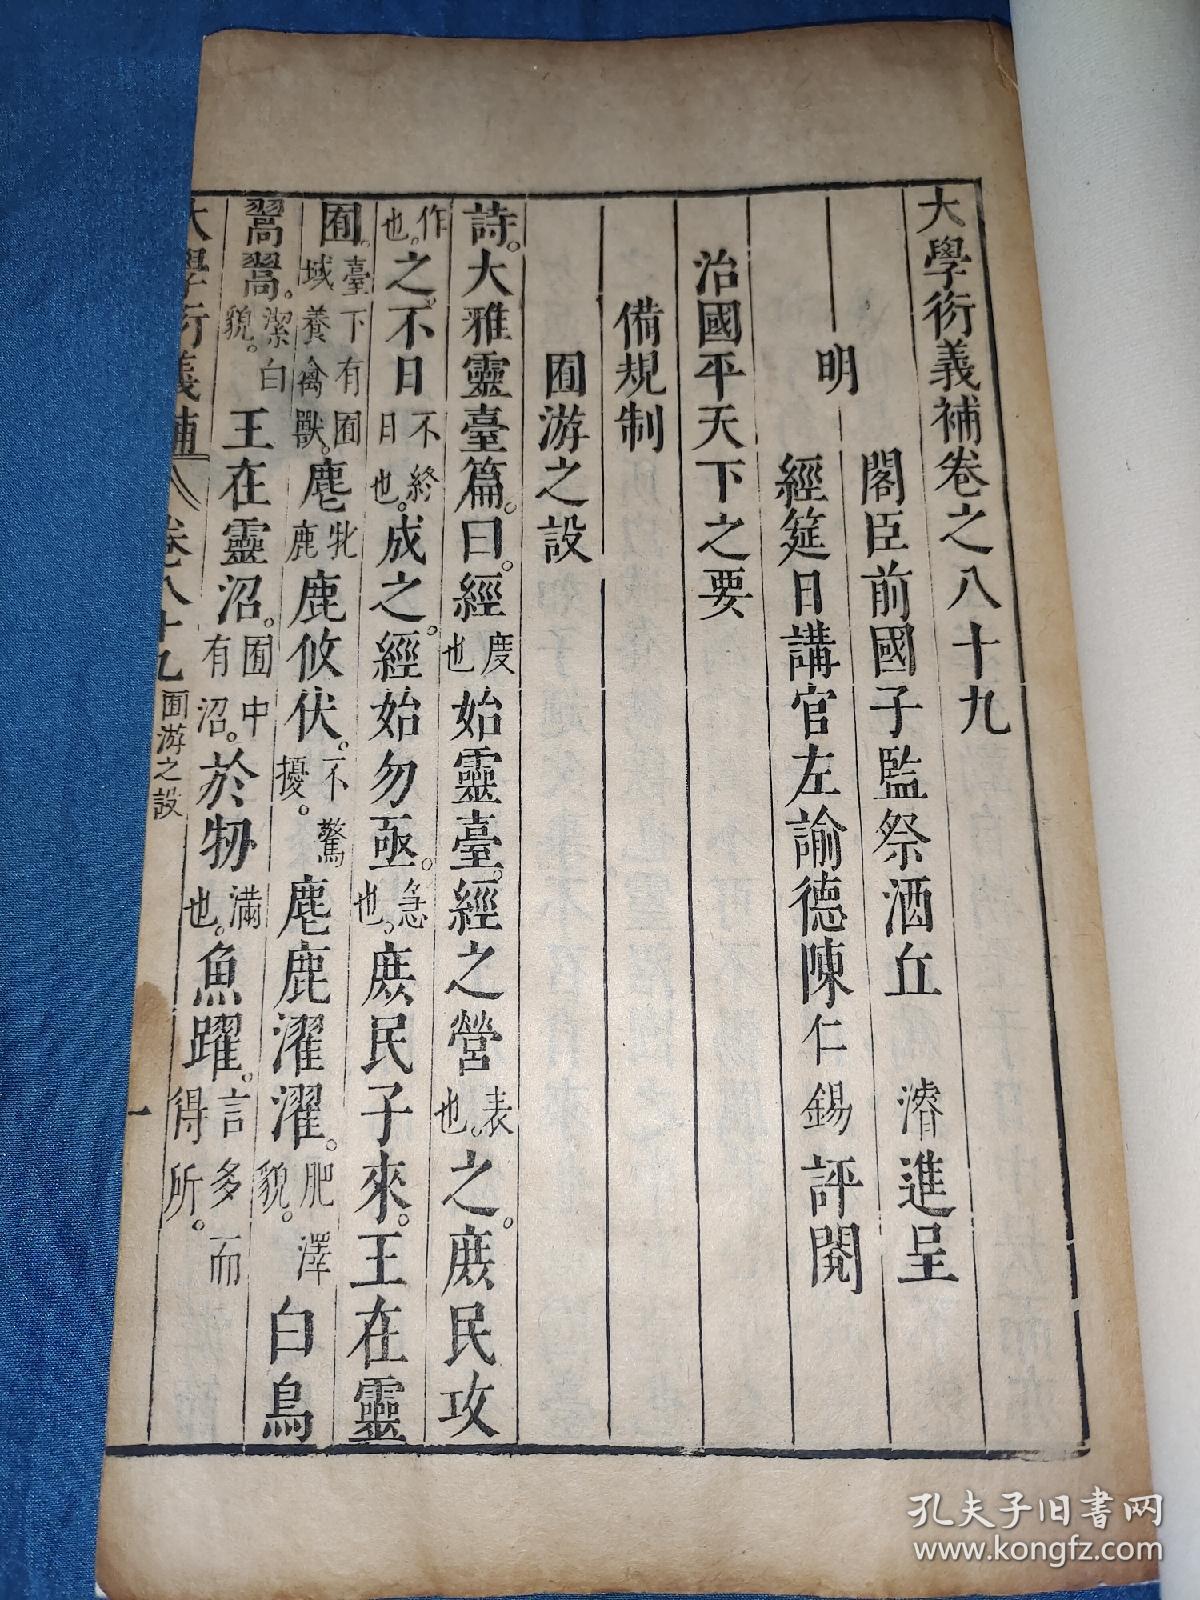 大學衍義補卷之八十九
明
閣臣前國子監祭酒丘濬進呈
經筵日講官左諭德陳仁錫評閱
治國平天下之要
備規制
囿游之設
詩。大雅靈臺篇。曰。經度也始靈臺。經之營表也。之。庶民攻
作也。之。不日不終日也。成之。經始勿亟。急也。庶民子來。王在靈
囿。臺下有囿域養禽獸。麀牝鹿鹿攸伏。不驚擾。麀鹿濯濯。肥澤貌。白鳥
翯翯。潔白貌。王在靈沼。囿中有沼。於牣滿也。魚躍。言多而得所。
大學衍義補 卷八十九 囿游之設 一
孔夫子旧书网
www.kongfz.com